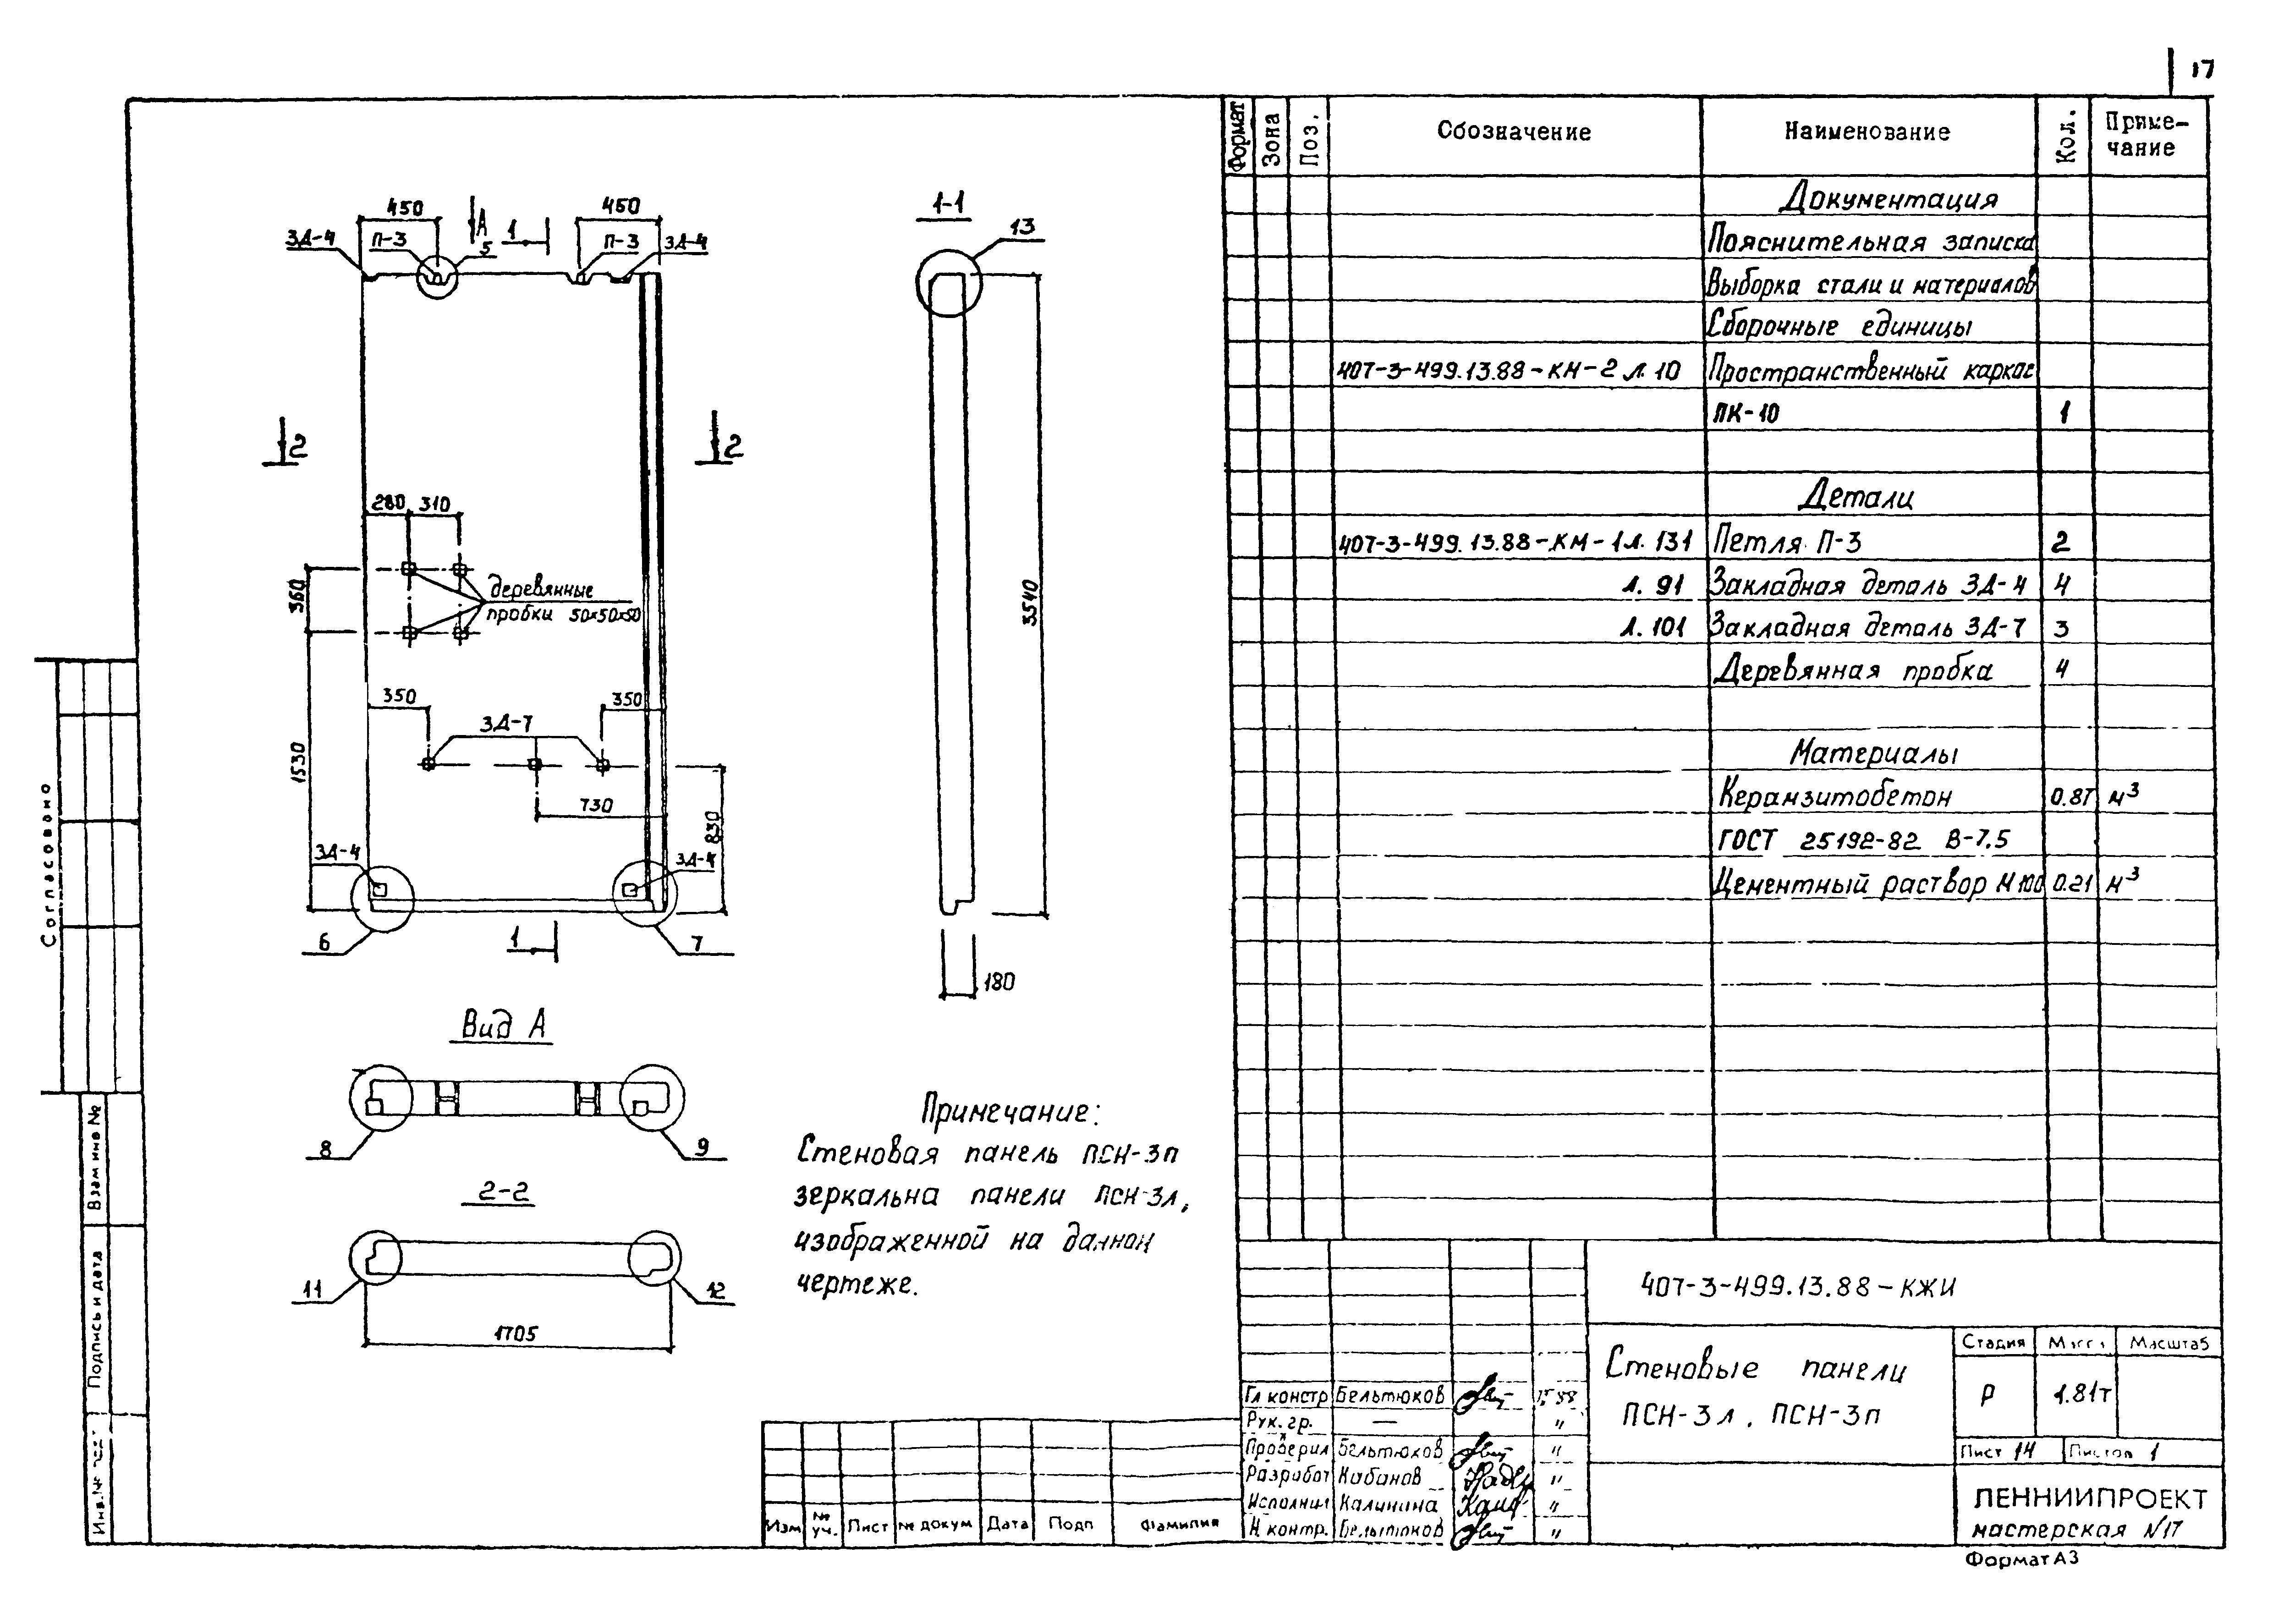 17
450
А
1
450
ЗД-4
П-3
5
П-3
ЗД-4
2
2
280
310
360
деревянные
пробки 50×50×50
350
ЗД-7
350
1530
730
830
ЗД-4
ЗД-4
6
1
7
1-1
13
3540
180
Вид А
8
9
2-2
11
12
1705
Примечание:
Стеновая панель ПСН-3п
зеркальна панели ПСН-3л,
изображенной на данном
чертеже.
Формат
Зона
Поз.
Обозначение
Наименование
Кол.
Приме-
чание
Документация
Пояснительная записка
Выборка стали и материалов
Сборочные единицы
407-3-499.13.88-КН-2 л.10 Пространственный каркас
ПК-10 1
Детали
407-3-499.13.88-КМ-1 л.131 Петля П-3 2
л. 91 Закладная деталь ЗД-4 4
л. 101 Закладная деталь ЗД-7 3
Деревянная пробка 4
Материалы
Керамзитобетон 0.87 м³
ГОСТ 25192-82 В-7.5
Цементный раствор М100 0.21 м³
407-3-499.13.88-КЖИ
Стеновые панели
ПСН-3л, ПСН-3п
Стадия Масса Масштаб
Р 1.81т
Лист 14 Листов 1
ЛЕННИИПРОЕКТ
мастерская №17
Формат А3
Гл констр Бельтюков
Рук. гр. — "
Проверил Бельтюков "
Разработ Кабанов "
Исполнил Калинина "
Н контр. Бельтюков "
Изм № уч. Лист № докум Дата Подп Фамилия
Согласовано
Взам инв №
Подпись и дата